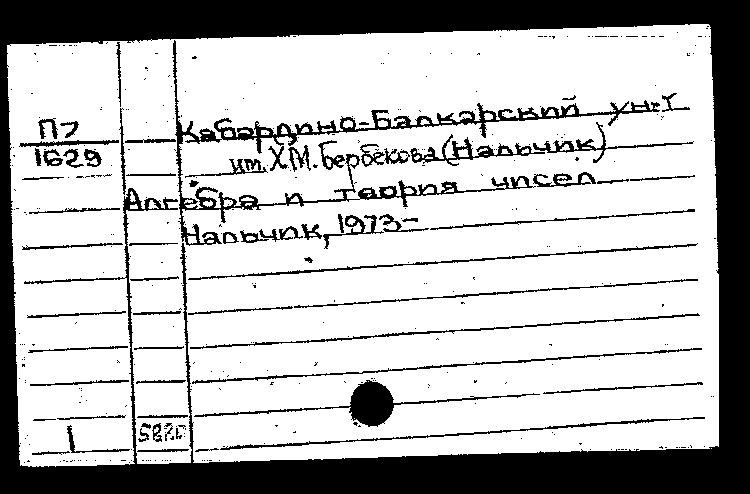 П7 Кабардино-Балкарский ун-т
1629 им. Х.М. Бербекова (Нальчик)
Алгебра и теория чисел
Нальчик, 1973-
1